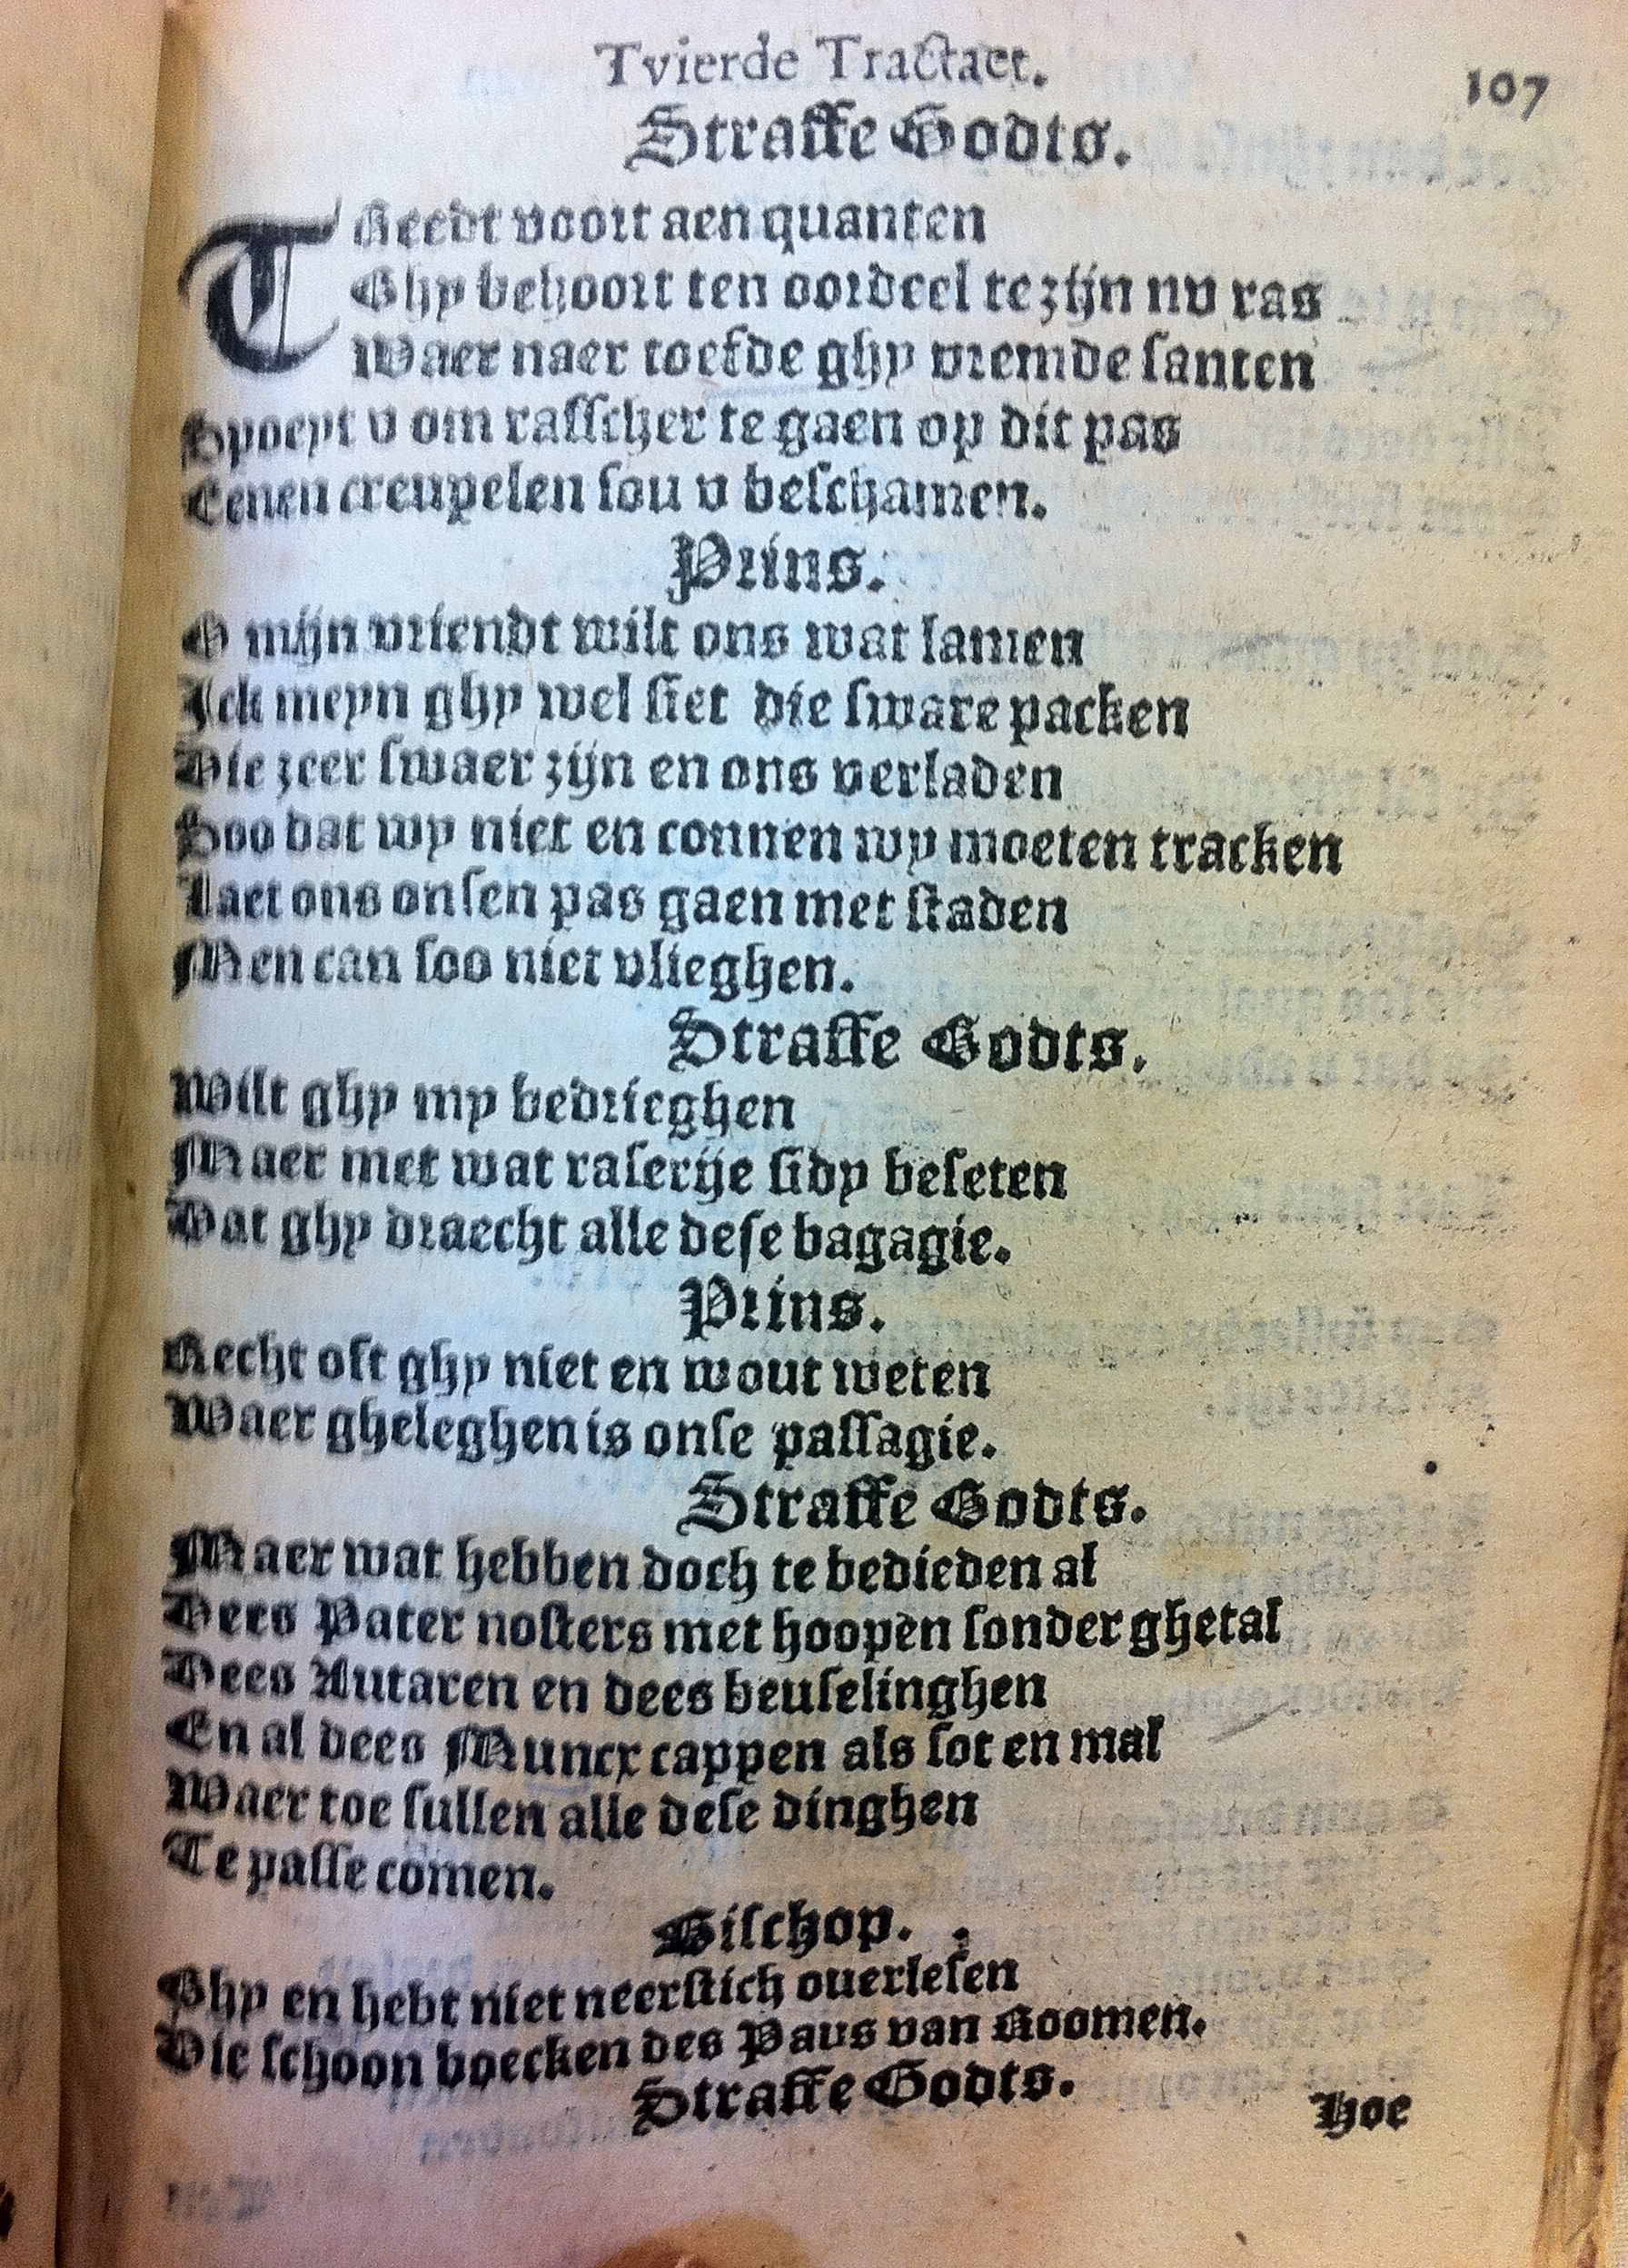 Tvierde Tractaet.
107
Straffe Godts.
TReedt voort aen quanten
Ghy behoort ten oordeel te zijn nv ras
Waer naer toefde ghy vremde santen
Spoeyt v om rasscher te gaen op dit pas
Eenen creupelen sou v beschamen.
Prins.
O mijn vriendt wilt ons wat lamen
Ick meyn ghy wel siet die sware packen
Die zeer swaer zijn en ons verladen
Soo dat wy niet en connen wy moeten tracken
Laet ons onsen pas gaen met staden
Men can soo niet vlieghen.
Straffe Godts.
Wilt ghy my bedrieghen
Maer met wat raserije sidy beseten
Dat ghy draecht alle dese bagagie.
Prins.
Recht oft ghy niet en wout weten
Waer gheleghen is onse passagie.
Straffe Godts.
Maer wat hebben doch te bedieden al
Dees Pater nosters met hoopen sonder ghetal
Dees Autaren en dees beuselinghen
En al dees Muncx cappen als sot en mal
Waer toe sullen alle dese dinghen
Te passe comen.
Bischop.
Ghy en hebt niet neerstich ouerlesen
Die schoon boecken des Paus van Roomen.
Straffe Godts.
Hoe